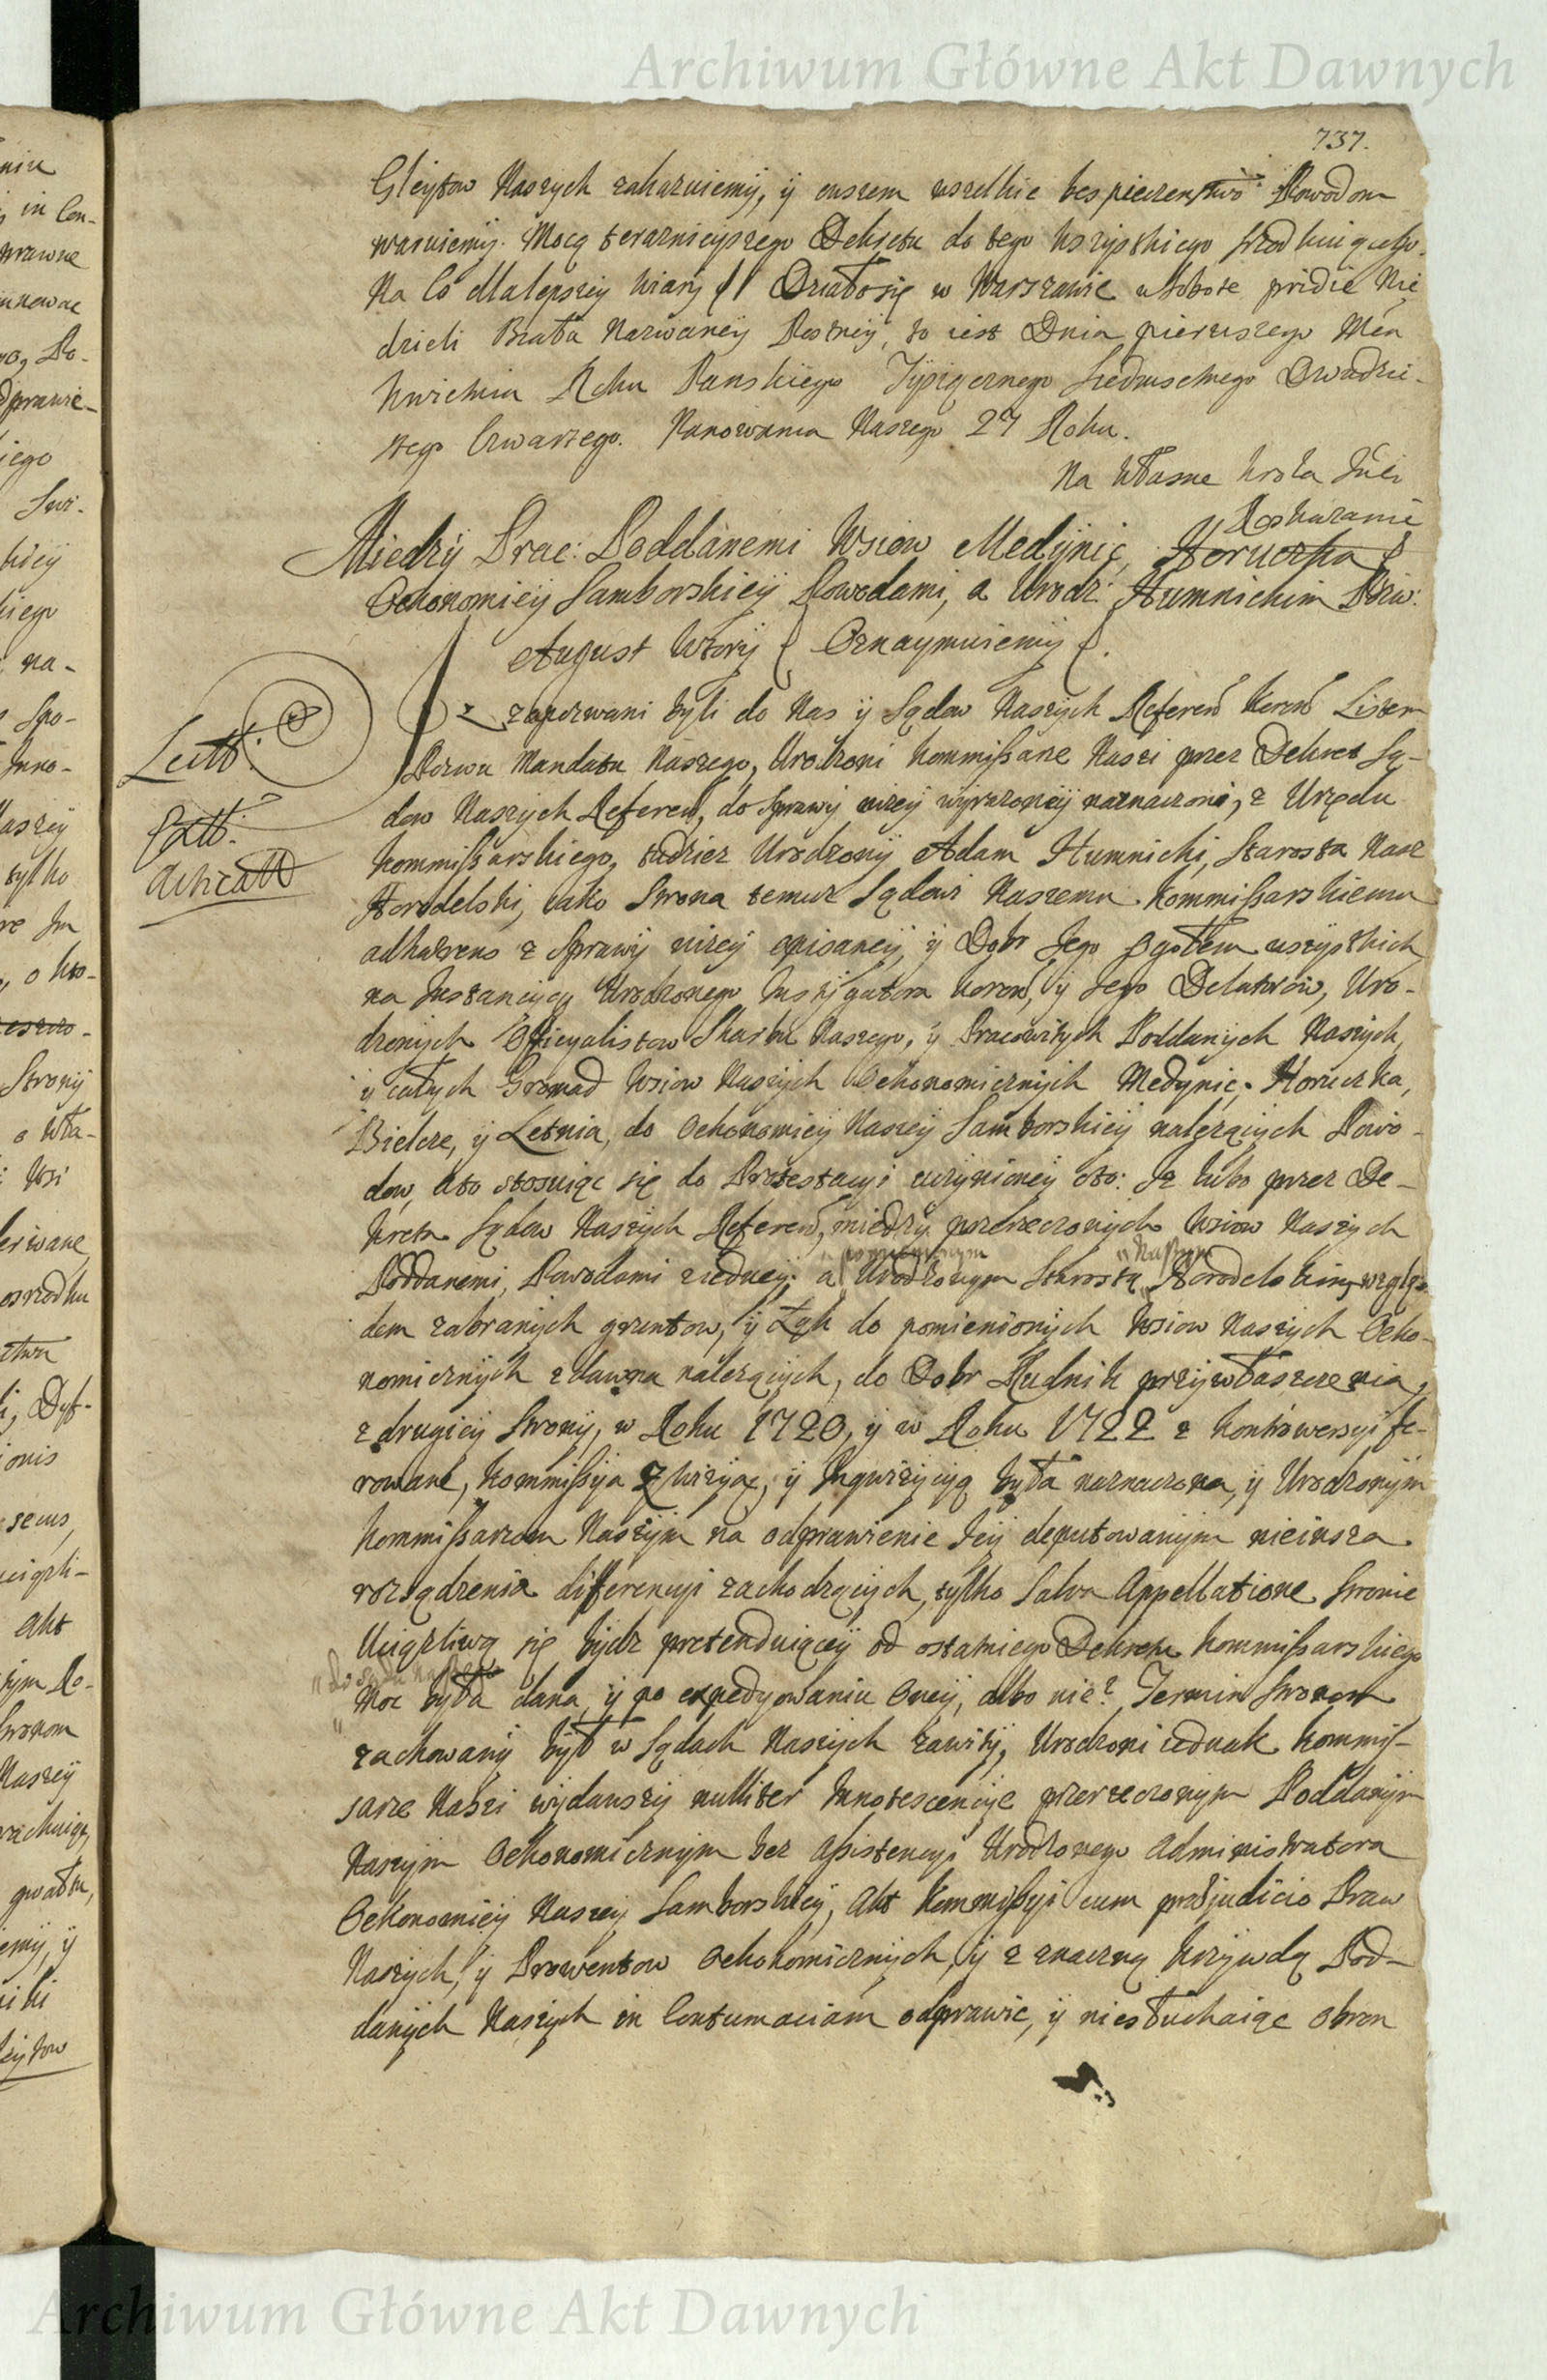 Archiwum Główne Akt Dawnych
737.
Gleytow Naszych zakazuiemy, y owszem wszelkie bespieczenstwo Powodom
waruiemy. Mocą teraznieyszego Dekretu do tego wszystkiego srzodkuiącego.
Na Co dla lepszey wiary // Działo się w Warszawie w Sobote pridie Nie
dzieli Biała Nazwaney Postney, to iest Dnia pierwszego Mca
Kwietnia Roku Panskiego Tysiącznego Siedmsetnego Dwudzie-
stego Czwartego. Panowania Naszego 27 Roku.
Na Własne Krola Jmci
Roskazanie
Miedzy Prac: Poddanemi Wsiow Medynic, Horucka
Oekonomiey Samborskiey Powodami, a Urodz: Humnickim Pozw:
August Wtory Oznaymuiemy
Iz zapozwani byli do Nas y Sądow Naszych Referen Koron Listem
Pozwu Mandatu Naszego, Urodzoni Kommissarze Nasi przez Dekret Są-
dow Naszych Referen, do Sprawy nizey wyrazoney naznaczoni, z Urzędu
Kommissarskiego, tudziez Urodzony Adam Humnicki, Starosta Nasz
Horodelski, iako Strona temuz Sądowi Naszemu Kommissarskiemu
adhaerens z Sprawy nizey opisaney, y Dobr Jego ogołem wszystkich
na Instancyą Urodzonego Instygatora Koron, y Jego Delatorow, Uro-
dzonych Officyalistow Skarbu Naszego, y Pracowitych Poddanych Naszych,
y całych Gromad Wsiow Naszych Oekonomicznych Medynic, Horucka,
Bielcze, y Letnia, do Oekonomiey Naszey Samborskiey nalezących Powo-
dow, a to stosuiąc się do Protestacyi uczynioney o to: Iz lubo przez De-
kreta Sądow Naszych Referen, miedzy przerzeczonych Wsiow Naszych
" pomienionym " Naszym
Poddanemi, Powodami z iedney. a Urodzonym Starostą Horodelskim, wzglę-
dem zabranych gruntow, y Łąk do pomienionych Wsiow Naszych Oeko-
nomicznych zdawna nalezących, do Dobr Rudnik przywłaszczenia,
z drugiey Strony, w Roku 1720, y w Roku 1722 z Kontrowersyi fe-
rowane, Kommissya z wizyą, y Inqwizycyą była naznaczona, y Urodzonym
Kommissarzom Naszym na odprawienie Jey deputowanym nie insza
rozsądzenia differencyi zachodzących, tylko Salva Appellatione Stronie
Uciązliwą się bydz pretenduiącey od ostatniego Dekretu Kommissarskiego
" do Sądu naszego
Moc była dana, y po expedyowaniu Oney, albo nie? Termin Stronom
zachowany był w Sądach Naszych zawity, Urodzoni iednak Kommis-
sarze Nasi wydawszy nulliter Innotescencye przerzeczonym Poddanym
Naszym Oekonomicznym bez Assistencyi Urodzonego Administratora
Oekonomiey Naszey Samborskiey, Akt Kommissyi cum praejudicio Praw
Naszych, y Prowentow Oekonomicznych, y z znaczną krzywdą Pod-
danych Naszych in Contumaciam odprawic, y niesłuchaiąc obron
Archiwum Główne Akt Dawnych